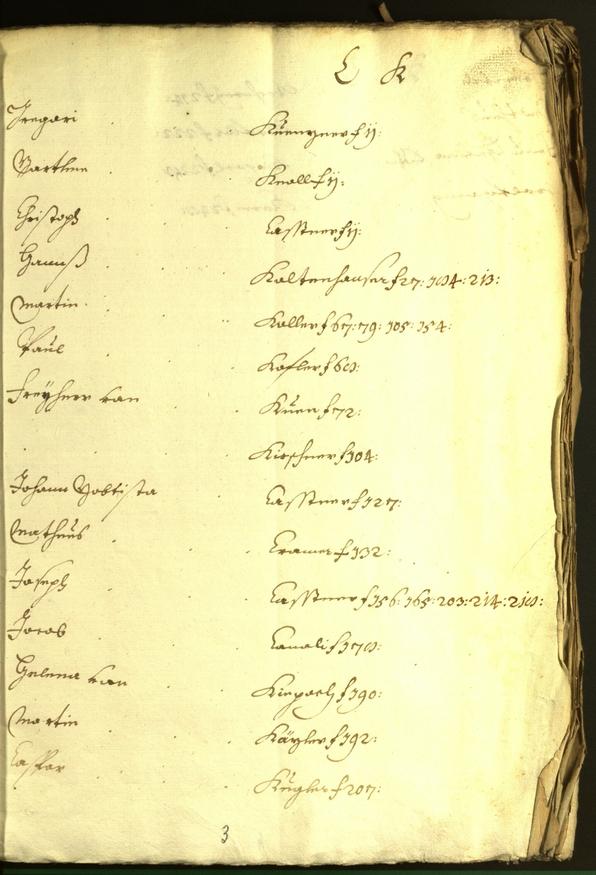 C K
Gregori Küenzner f 11:
Barthlme Knoll f 11:
Christoph Casstner f 11:
Hannß Kaltenhauser f 27: 104: 213:
Martin Koller f 67: 79: 105: 154:
Paul Kofler f 60:
Freyherr van Küen f 72:
Kirschner f 104:
Johann Babtista Casstner f 127:
Matheus Cramer f 132:
Joseph Casstner f 156: 165: 203: 214: 210:
Jacob Canali f 170:
Helena van f 190:
Martin f 192:
Caspar Kugler f 207:
3